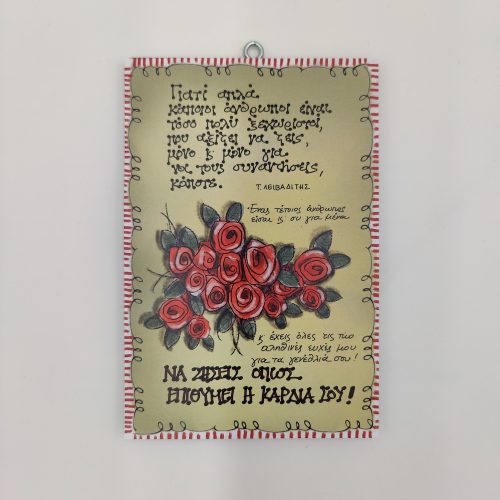 Γιατί απλά
κάποιοι άνθρωποι είναι
τόσο πολύ ξεχωριστοί,
που αξίζει να ζεις,
μόνο κ μόνο για
να τους συναντήσεις,
κάποτε.
Τ. ΛΕΙΒΑΔΙΤΗΣ
Ένας τέτοιος άνθρωπος
είσαι κ συ για μένα
κ έχεις όλες τις πιο
αληθινές ευχές μου
για τα γενέθλιά σου!
ΝΑ ΖΗΣΕΙΣ ΟΠΩΣ
ΕΠΙΘΥΜΕΙ Η ΚΑΡΔΙΑ ΣΟΥ!